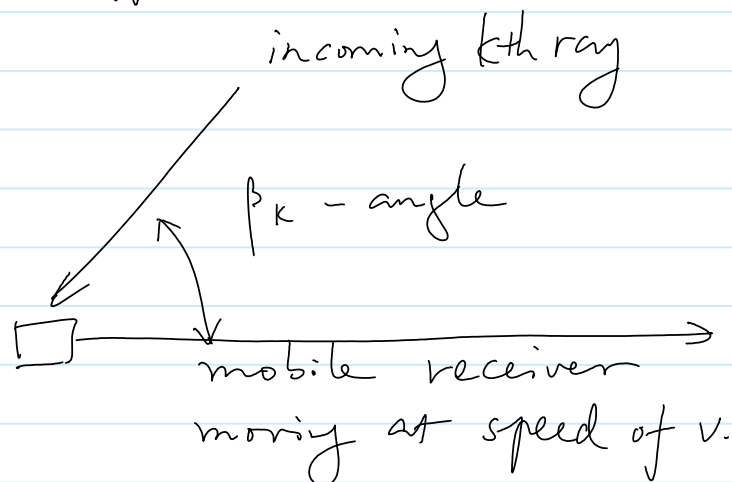 incoming kth ray
βk - angle
mobile receiver
moving at speed of v.